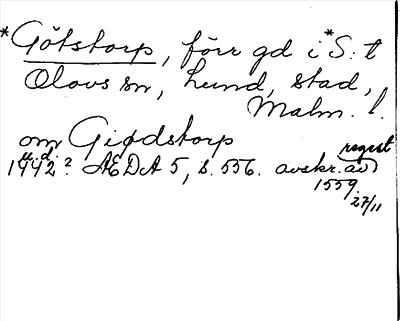 *Götstorp, förr gd i *S:t
Olovs sn, Lund, stad,
Malm. l.
om Giødstorp
u.d.
1442? ÆDA 5, s. 556. avskr. av regest
1559 27/11